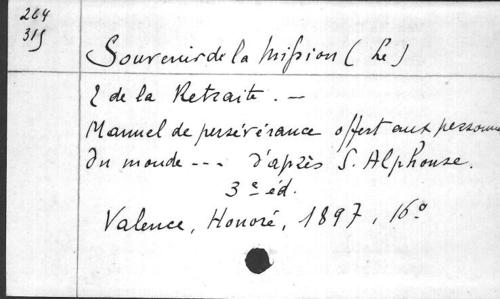 264
315
Souvenir de la Mission (Le)
& de la Retraite. —
Manuel de persévérance offert aux personnes
du monde --- d'après S. Alphonse.
3e éd.
Valence, Honoré, 1897, 16°